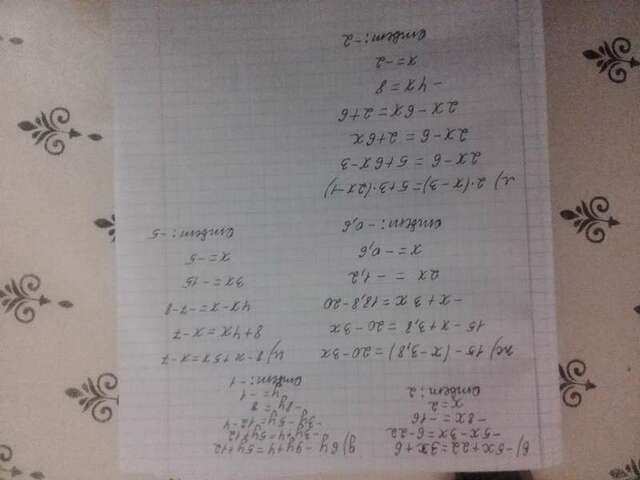 в) -5x+22=3x+6
-5x-3x=6-22
-8x = -16
x = 2
Ответ: 2
д) 6y-9y+4=5y+12
-3y+4=5y+12
-3y-5y=12-4
-8y=8
y=-1
Ответ: -1
ж) 15-(x-3,8)=20-3x
15-x+3,8=20-3x
-x+3x=18,8-20
2x = -1,2
x = -0,6
Ответ: -0,6
и) 8-x+5x=x-7
8+4x=x-7
4x-x=-7-8
3x=-15
x=-5
Ответ: -5
л) 2·(x-3)=5+3·(2x-1)
2x-6=5+6x-3
2x-6=2+6x
2x-6x=2+6
-4x=8
x=-2
Ответ: -2